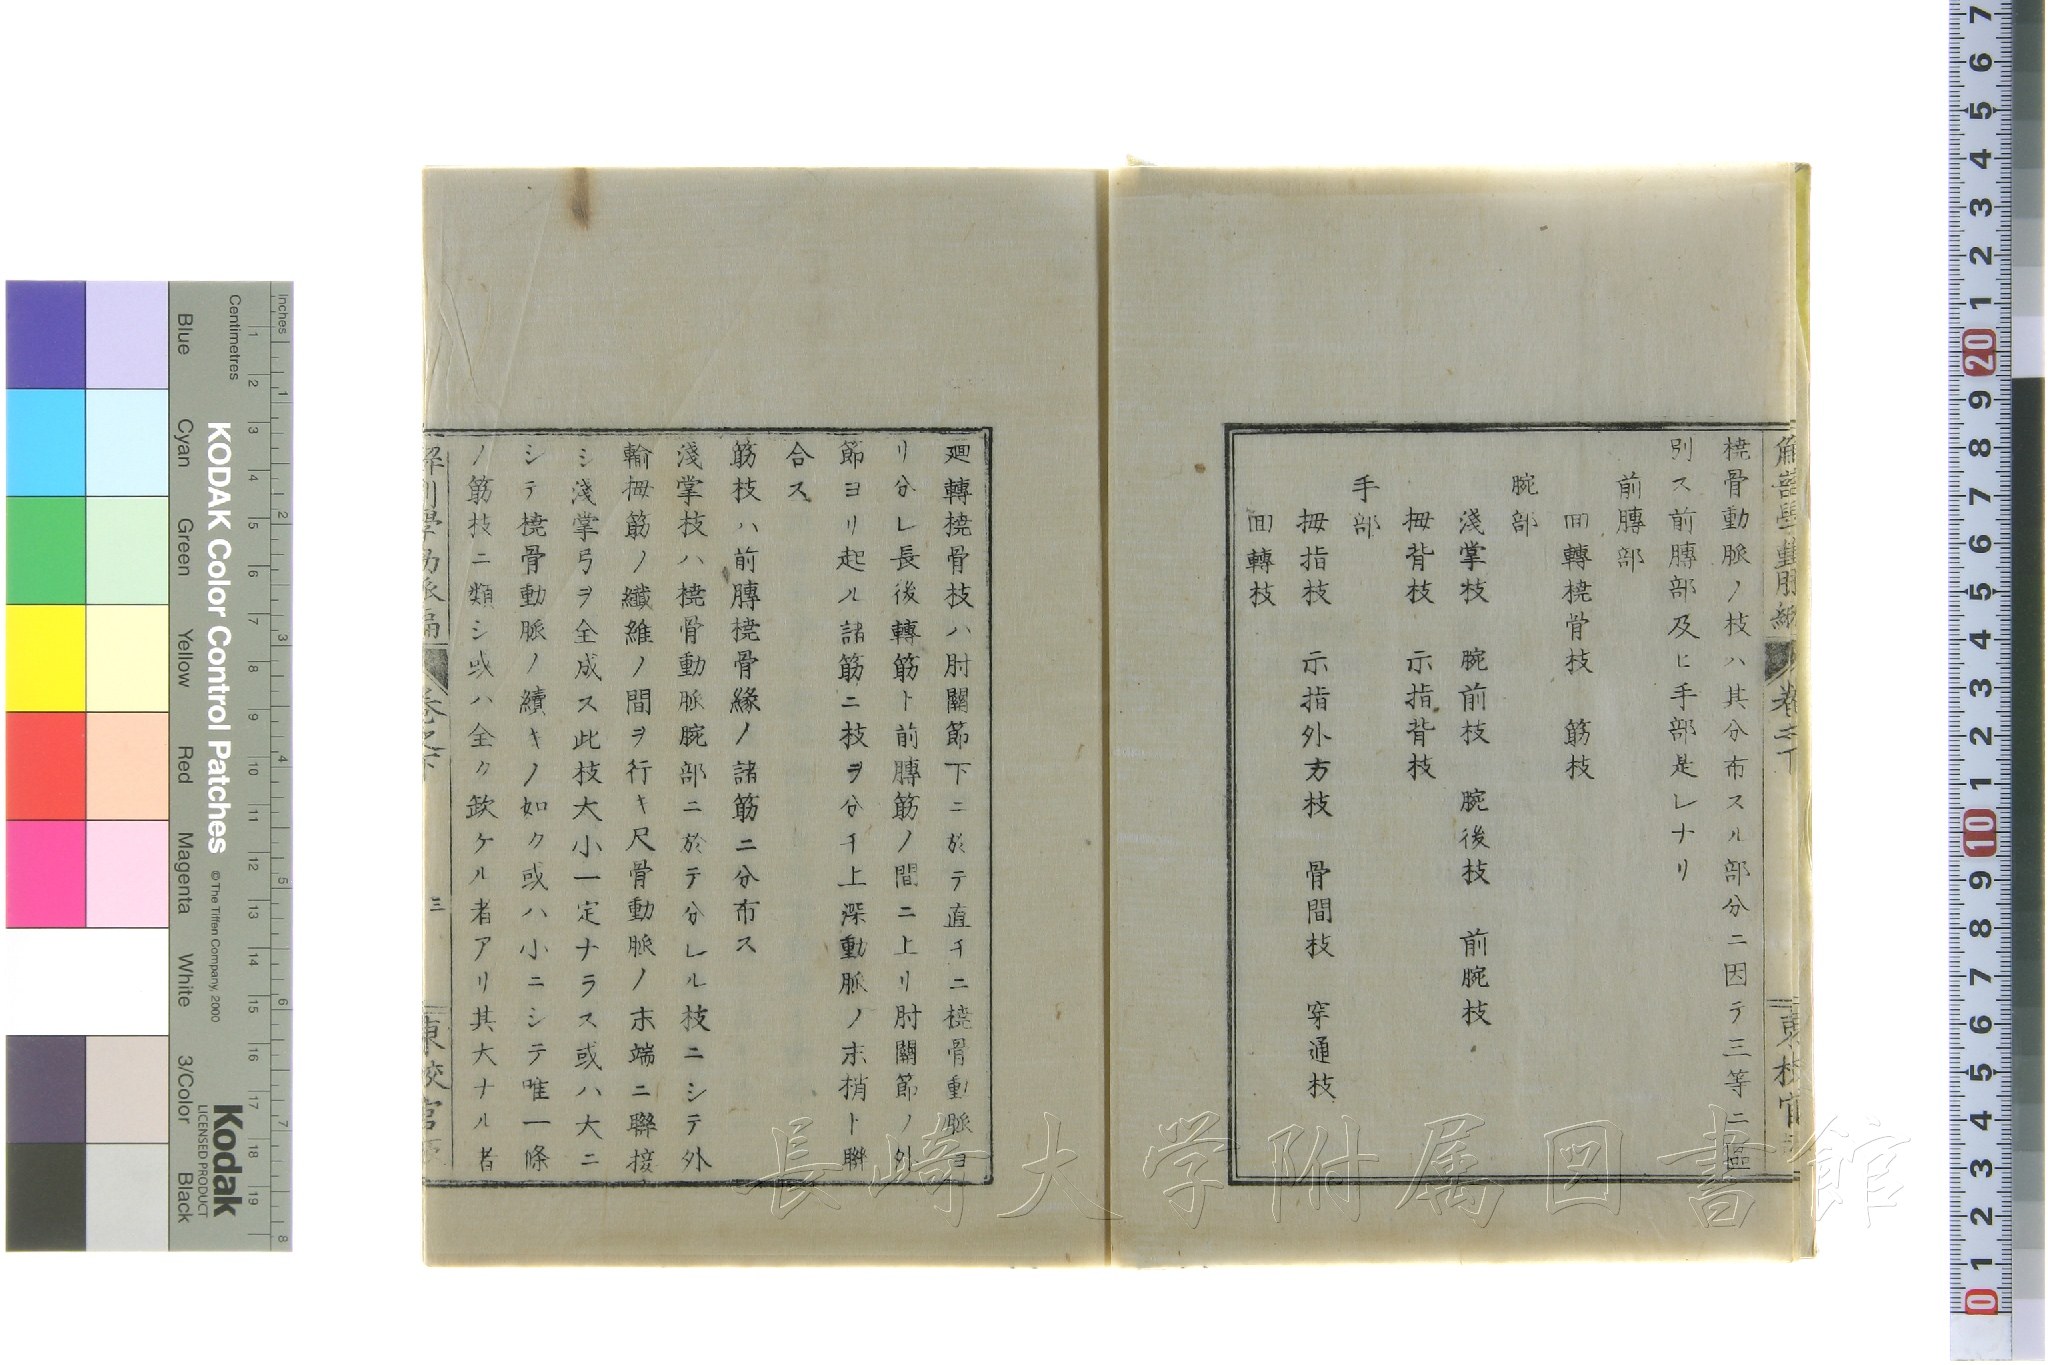 橈骨動脈ノ枝ハ其分布スル部分ニ因テ三等ニ區
別ス前膊部及ヒ手部是レナリ
前膊部
回轉橈骨枝 筋枝
腕部
淺掌枝 腕前枝 腕後枝 前腕枝
拇背枝 示指背枝
手部
拇指枝 示指外方枝 骨間枝 穿通枝
回轉枝
廻轉橈骨枝ハ肘關節下ニ於テ直チニ橈骨動脈ヨ
リ分レ長後轉筋ト前膊筋ノ間ニ上リ肘關節ノ外
節ヨリ起ル諸筋ニ枝ヲ分チ上深動脈ノ末梢ト聯
合ス
筋枝ハ前膊橈骨緣ノ諸筋ニ分布ス
淺掌枝ハ橈骨動脈腕部ニ於テ分レル枝ニシテ外
輸拇筋ノ纖維ノ間ヲ行キ尺骨動脈ノ末端ニ聯接
シ淺掌弓ヲ全成ス此枝大小一定ナラス或ハ大ニ
シテ橈骨動脈ノ續キノ如ク或ハ小ニシテ唯一條
ノ筋枝ニ類シ或ハ全ク欽ケル者アリ其大ナル者
三
長崎大学附属図書館
KODAK Color Control Patches
© The Tiffen Company, 2000
Kodak
LICENSED PRODUCT
Inches
Centimetres
Blue
Cyan
Green
Yellow
Red
Magenta
White
3/Color
Black